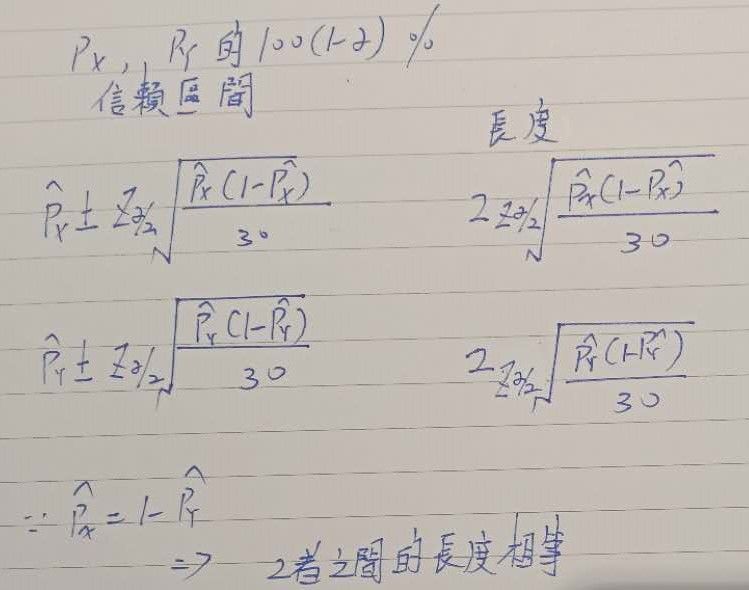 Pₓ,, Pᵧ 的 100(1-α) %
信賴區間
長度
P̂ₓ ± Z_α/₂ √(P̂ₓ(1-P̂ₓ)/30)
2 Z_α/₂ √(P̂ₓ(1-P̂ₓ)/30)
P̂ᵧ ± Z_α/₂ √(P̂ᵧ(1-P̂ᵧ)/30)
2 Z_α/₂ √(P̂ᵧ(1-P̂ᵧ)/30)
∵ P̂ₓ = 1- P̂ᵧ
⇒ 2者之間的長度相等